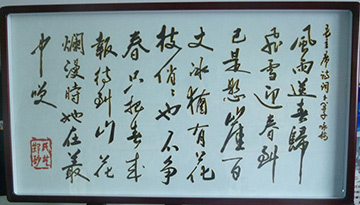 毛主席诗词 卜算子 咏梅
風雨送春歸
飛雪迎春到
已是懸崖百
丈冰猶有花
枝俏俏也不争
春只把春来
報待到山花
爛漫時她在叢
中笑